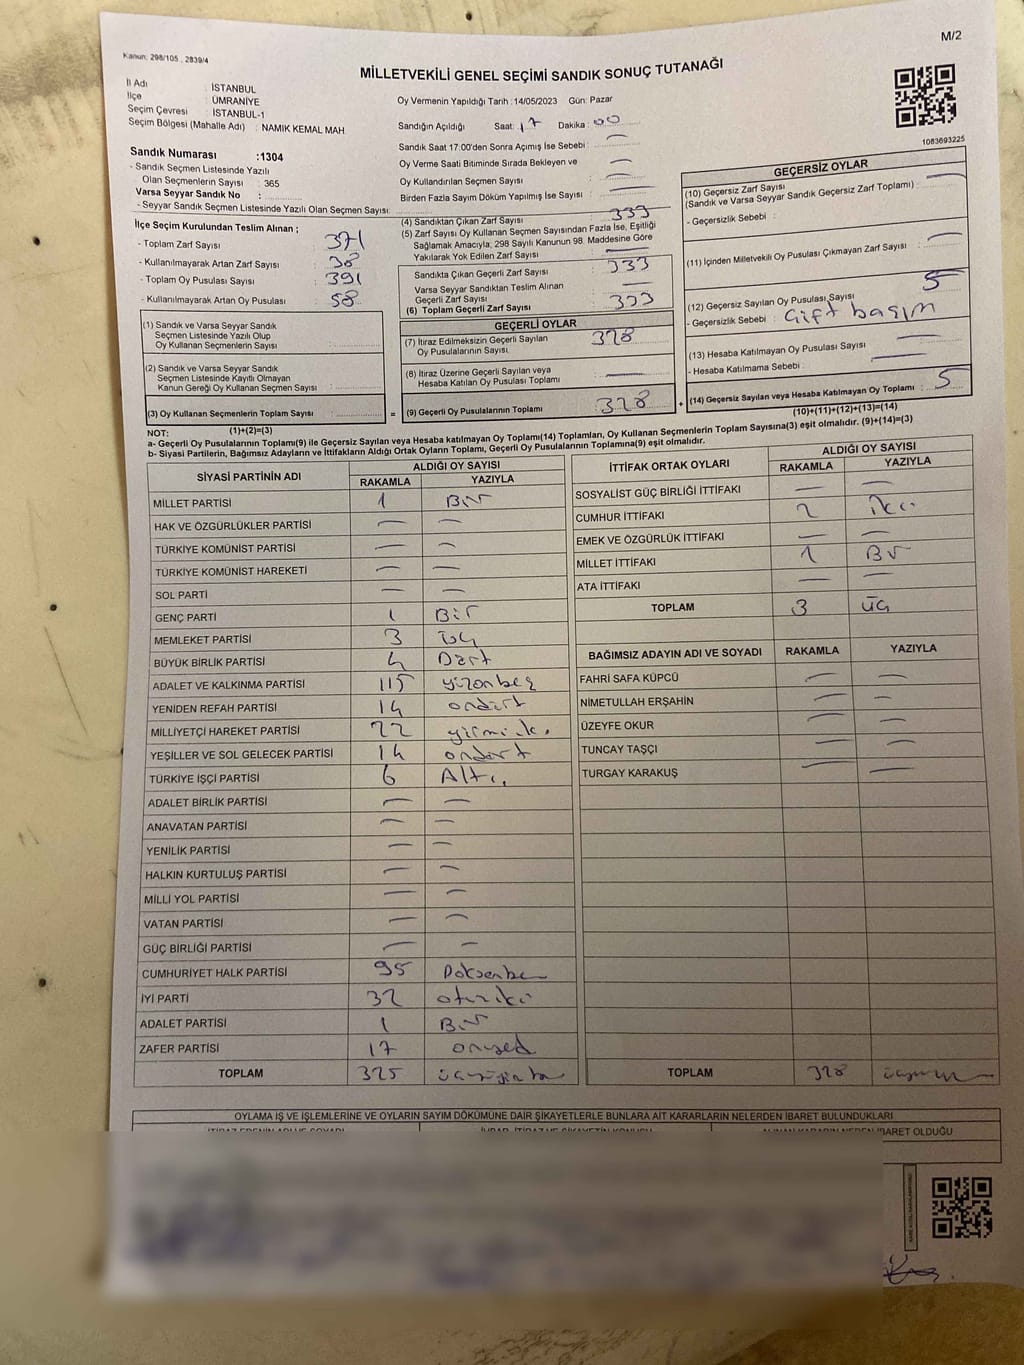 M/2
Kanun: 298/105 , 2839/4
MİLLETVEKİLİ GENEL SEÇİMİ SANDIK SONUÇ TUTANAĞI
İl Adı : İSTANBUL
İlçe : ÜMRANİYE
Seçim Çevresi : İSTANBUL-1
Seçim Bölgesi (Mahalle Adı) : NAMIK KEMAL MAH
Sandık Numarası :1304
- Sandık Seçmen Listesinde Yazılı
Olan Seçmenlerin Sayısı : 365
Varsa Seyyar Sandık No :
- Seyyar Sandık Seçmen Listesinde Yazılı Olan Seçmen Sayısı:
İlçe Seçim Kurulundan Teslim Alınan ;
- Toplam Zarf Sayısı : 371
- Kullanılmayarak Artan Zarf Sayısı : 38
- Toplam Oy Pusulası Sayısı : 391
- Kullanılmayarak Artan Oy Pusulası : 58
(1) Sandık ve Varsa Seyyar Sandık
Seçmen Listesinde Yazılı Olup
Oy Kullanan Seçmenlerin Sayısı :
(2) Sandık ve Varsa Seyyar Sandık
Seçmen Listesinde Kayıtlı Olmayan
Kanun Gereği Oy Kullanan Seçmen Sayısı :
(3) Oy Kullanan Seçmenlerin Toplam Sayısı :
(1)+(2)=(3)
Oy Vermenin Yapıldığı Tarih :14/05/2023 Gün: Pazar
Sandığın Açıldığı Saat: 17 Dakika : 00
Sandık Saat 17:00'den Sonra Açımış İse Sebebi : —
Oy Verme Saati Bitiminde Sırada Bekleyen ve
Oy Kullandırılan Seçmen Sayısı : —
Birden Fazla Sayım Döküm Yapılmış İse Sayısı : —
(4) Sandıktan Çıkan Zarf Sayısı : 333
(5) Zarf Sayısı Oy Kullanan Seçmen Sayısından Fazla İse, Eşitliği
Sağlamak Amacıyla, 298 Sayılı Kanunun 98. Maddesine Göre
Yakılarak Yok Edilen Zarf Sayısı : —
Sandıkta Çıkan Geçerli Zarf Sayısı : 333
Varsa Seyyar Sandıktan Teslim Alınan
Geçerli Zarf Sayısı : —
(6) Toplam Geçerli Zarf Sayısı : 333
GEÇERLİ OYLAR
(7) İtiraz Edilmeksizin Geçerli Sayılan
Oy Pusulalarının Sayısı : 328
(8) İtiraz Üzerine Geçerli Sayılan veya
Hesaba Katılan Oy Pusulası Toplamı : —
= (9) Geçerli Oy Pusulalarının Toplamı : 328
1083693225
GEÇERSİZ OYLAR
(10) Geçersiz Zarf Sayısı
(Sandık ve Varsa Seyyar Sandık Geçersiz Zarf Toplamı) : —
- Geçersizlik Sebebi :
(11) İçinden Milletvekili Oy Pusulası Çıkmayan Zarf Sayısı : —
(12) Geçersiz Sayılan Oy Pusulası Sayısı : 5
- Geçersizlik Sebebi : Çift basım
(13) Hesaba Katılmayan Oy Pusulası Sayısı : —
- Hesaba Katılmama Sebebi : —
+ (14) Geçersiz Sayılan veya Hesaba Katılmayan Oy Toplamı : 5
(10)+(11)+(12)+(13)=(14)
NOT:
a- Geçerli Oy Pusulalarının Toplamı(9) ile Geçersiz Sayılan veya Hesaba katılmayan Oy Toplamı(14) Toplamları, Oy Kullanan Seçmenlerin Toplam Sayısına(3) eşit olmalıdır. (9)+(14)=(3)
b- Siyasi Partilerin, Bağımsız Adayların ve İttifakların Aldığı Ortak Oyların Toplamı, Geçerli Oy Pusulalarının Toplamına(9) eşit olmalıdır.
SİYASİ PARTİNİN ADI ALDIĞI OY SAYISI
RAKAMLA YAZIYLA
MİLLET PARTİSİ 1 Bir
HAK VE ÖZGÜRLÜKLER PARTİSİ — —
TÜRKİYE KOMÜNİST PARTİSİ — —
TÜRKİYE KOMÜNİST HAREKETİ — —
SOL PARTİ — —
GENÇ PARTİ 1 Bir
MEMLEKET PARTİSİ 3 Üç
BÜYÜK BİRLİK PARTİSİ 4 Dört
ADALET VE KALKINMA PARTİSİ 115 yüzonbeş
YENİDEN REFAH PARTİSİ 14 ondört
MİLLİYETÇİ HAREKET PARTİSİ 22
YEŞİLLER VE SOL GELECEK PARTİSİ 14 ondört
TÜRKİYE İŞÇİ PARTİSİ 6 Altı
ADALET BİRLİK PARTİSİ — —
ANAVATAN PARTİSİ — —
YENİLİK PARTİSİ — —
HALKIN KURTULUŞ PARTİSİ — —
MİLLİ YOL PARTİSİ — —
VATAN PARTİSİ — —
GÜÇ BİRLİĞİ PARTİSİ — —
CUMHURİYET HALK PARTİSİ 95 Doksanbe
İYİ PARTİ 32 otuziki
ADALET PARTİSİ 1 Bir
ZAFER PARTİSİ 17 onyed
TOPLAM 325
İTTİFAK ORTAK OYLARI ALDIĞI OY SAYISI
RAKAMLA YAZIYLA
SOSYALİST GÜÇ BİRLİĞİ İTTİFAKI — —
CUMHUR İTTİFAKI 2 iki
EMEK VE ÖZGÜRLÜK İTTİFAKI — —
MİLLET İTTİFAKI 1 Bir
ATA İTTİFAKI — —
TOPLAM 3 Üç
BAĞIMSIZ ADAYIN ADI VE SOYADI RAKAMLA YAZIYLA
FAHRİ SAFA KÜPCÜ — —
NİMETULLAH ERŞAHİN — —
ÜZEYFE OKUR — —
TUNCAY TAŞÇI — —
TURGAY KARAKUŞ — —
TOPLAM 328
OYLAMA İŞ VE İŞLEMLERİNE VE OYLARIN SAYIM DÖKÜMÜNE DAİR ŞİKAYETLERLE BUNLARA AİT KARARLARIN NELERDEN İBARET BULUNDUKLARI
İBARET OLDUĞU